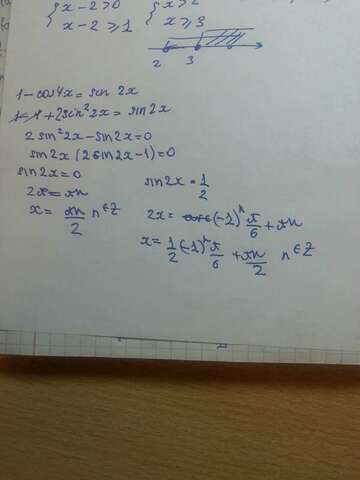 { x-2>0 { x>2
{ x-2≥1 { x≥3
2 3
1-cos4x = sin 2x
1-1+2sin²2x = sin2x
2sin²2x-sin2x=0
sin2x(2sin2x-1)=0
sin2x=0 sin2x=1/2
2x=πn 2x=(-1)ⁿ π/6+πn
x=πn/2 n∈Z x=1/2(-1)ⁿ π/6+πn/2 n∈Z